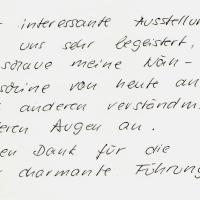 interessante Ausstellung
uns sehr begeistert,
schaue meine Näh-
schine von heute an
anderen verständni
eren Augen an.
en Dank für die
charmante Führung